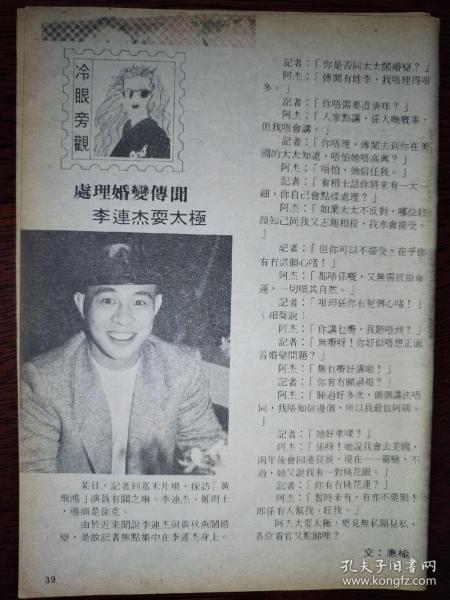 冷眼旁觀
處理婚變傳聞
李連杰耍太極
某日，記者到嘉禾片場，採訪「黃
飛鴻」演員有關之琳、李連杰、鄭則士
，導演是徐克。
由於近來聞說李連杰與黃秋燕鬧婚
變，是故記者焦點集中在李連杰身上。
記者：「你是否同太太鬧婚變？」
阿杰：「傳聞有姓李，我唔理得咁
多。」
記者：「你唔需要澄清咩？」
阿杰：「人家點講，係人哋嘅事，
但我唔會講。」
記者：「你唔理，傳聞去到你在美
國的太太知道，唔怕她唔高興？」
阿杰：「唔怕，她信任我。」
記者：「有相士話你將來有一大一
細，你自己會點樣處理？」
阿杰：「如果太太不反對，哪位紅
顏知己同我又志趣相投，我亦會接受。
」
記者：「但你可以不接受，在乎你
有冇這個心啫！」
阿杰：「都唔係嘅，又無需抗拒命
運，一切順其自然。」
記者：「咁即係你有呢個心啫！」
（細聲說）
阿杰：「你講乜嘢，我聽唔到？」
記者：「無嘢呀！你好似唔想正面
答婚變問題？」
阿杰：「無乜嘢好講啦！」
記者：「你有冇睇過相？」
阿杰：「睇過好多次，個個講法唔
同，我唔知信邊個，所以我最信阿嫲。
」
記者：「她好準㗎？」
阿杰：「係呀！她說我會去美國，
兩年後會回港發展，現在一一靈驗，不
過，她又說我有一對桃花眼。」
記者：「你有冇桃花運？」
阿杰：「暫時未有，有亦不要緊！
即係有人幫我、旺我。」
阿杰大耍太極，更見無私顯見私，
各位看官又點睇哩？
文：惠楡
39
孔夫子旧书网